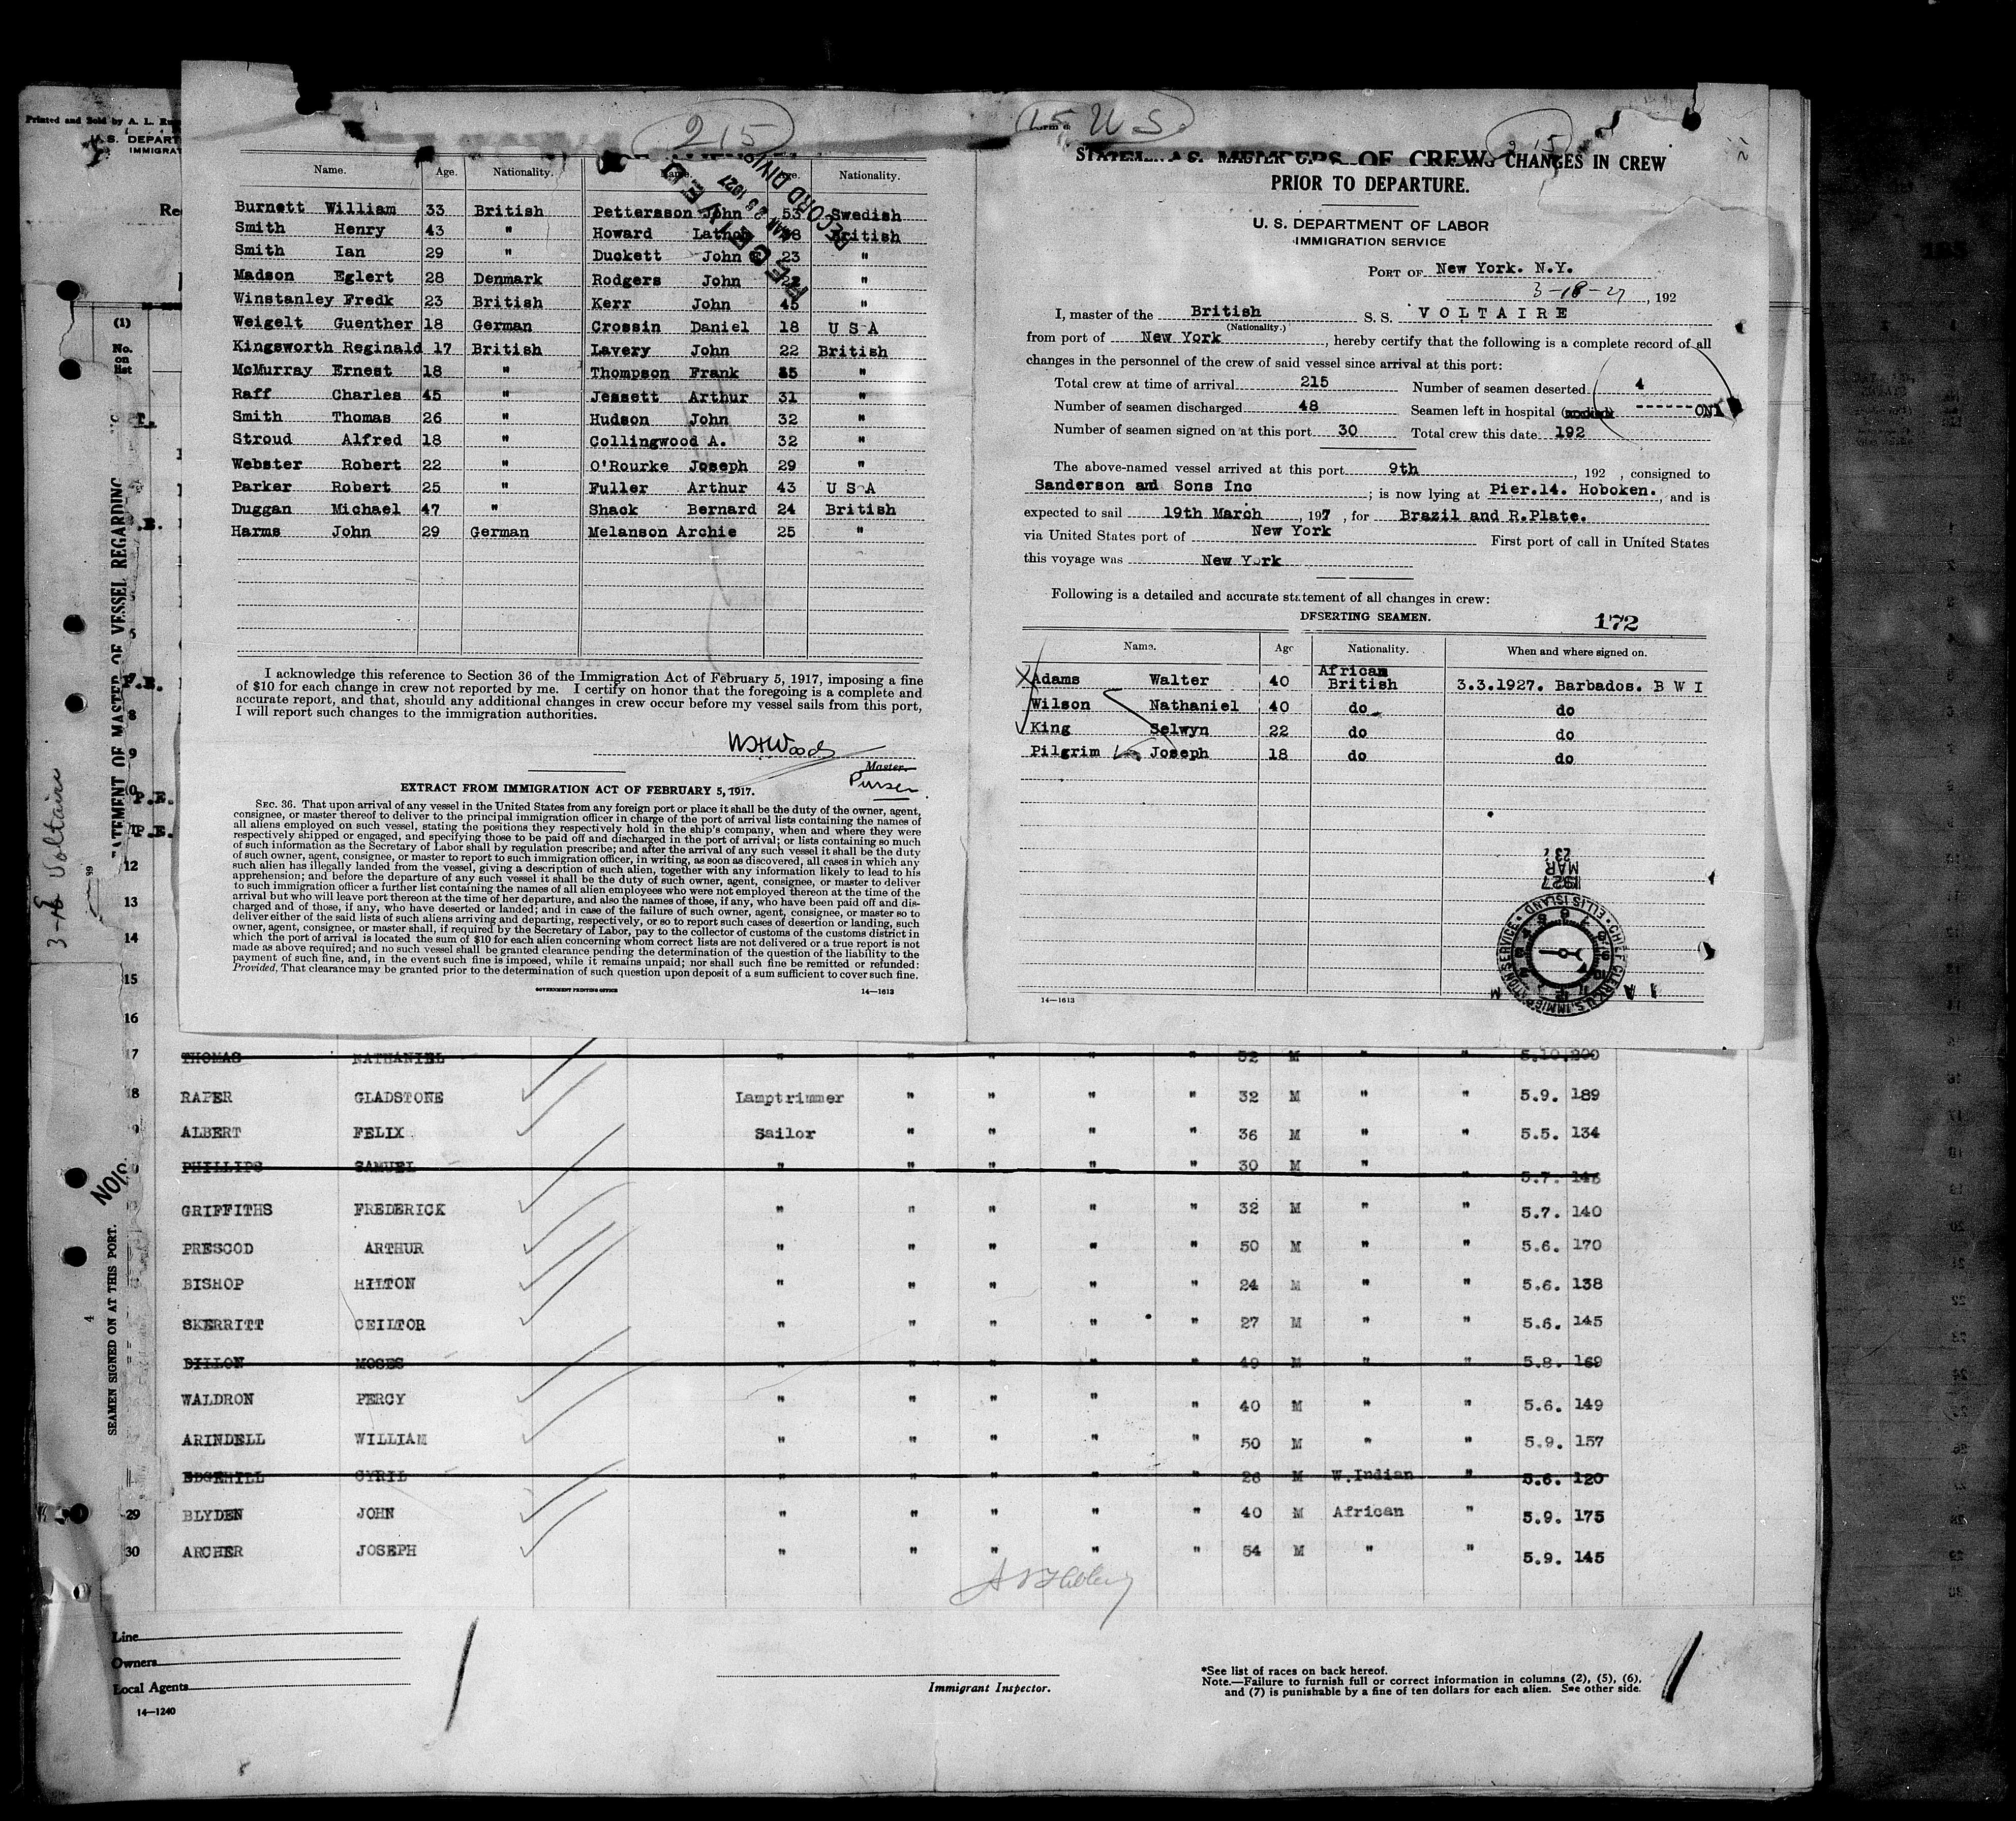 Printed and Sold by A. L.
U.S. DEPART
IMMIGRAT
Re
(1)
No.
on
list
STATEMENT OF MASTER OF VESSEL REGARDING
SEAMEN SIGNED ON AT THIS PORT.
4
Voltaire
P.E.
P.E.
P.E.
215
RECEIVED
RECORD DIVIS
Name. Age. Nationality. Name. Age. Nationality.
Burnett William 33 British Pettersson John 53 Swedish
Smith Henry 43 " Howard British
Smith Ian 29 " Duckett John 23 "
Madson Eglert 28 Denmark Rodgers John "
Winstanley Fredk 23 British Kerr John 45 "
Weigelt Guenther 18 German Crossin Daniel 18 U S A
Kingsworth Reginald 17 British Lavery John 22 British
McMurray Ernest 18 " Thompson Frank 35 "
Raff Charles 45 " Jessett Arthur 31 "
Smith Thomas 26 " Hudson John 32 "
Stroud Alfred 18 " Collingwood A. 32 "
Webster Robert 22 " O'Rourke Joseph 29 "
Parker Robert 25 " Fuller Arthur 43 U S A
Duggan Michael 47 " Shack Bernard 24 British
Harms John 29 German Melanson Archie 25 "
I acknowledge this reference to Section 36 of the Immigration Act of February 5, 1917, imposing a fine
of $10 for each change in crew not reported by me. I certify on honor that the foregoing is a complete and
accurate report, and that, should any additional changes in crew occur before my vessel sails from this port,
I will report such changes to the immigration authorities.
Master.
Purser
EXTRACT FROM IMMIGRATION ACT OF FEBRUARY 5, 1917.
SEC. 36. That upon arrival of any vessel in the United States from any foreign port or place it shall be the duty of the owner, agent,
consignee, or master thereof to deliver to the principal immigration officer in charge of the port of arrival lists containing the names of
all aliens employed on such vessel, stating the positions they respectively hold in the ship's company, when and where they were
respectively shipped or engaged, and specifying those to be paid off and discharged in the port of arrival; or lists containing so much
of such information as the Secretary of Labor shall by regulation prescribe; and after the arrival of any such vessel it shall be the duty
of such owner, agent, consignee, or master to report to such immigration officer, in writing, as soon as discovered, all cases in which any
such alien has illegally landed from the vessel, giving a description of such alien, together with any information likely to lead to his
apprehension; and before the departure of any such vessel it shall be the duty of such owner, agent, consignee, or master to deliver
to such immigration officer a further list containing the names of all alien employees who were not employed thereon at the time of the
arrival but who will leave port thereon at the time of her departure, and also the names of those, if any, who have been paid off and dis-
charged and of those, if any, who have deserted or landed; and in case of the failure of such owner, agent, consignee, or master so to
deliver either of the said lists of such aliens arriving and departing, respectively, or so to report such cases of desertion or landing, such
owner, agent, consignee, or master shall, if required by the Secretary of Labor, pay to the collector of customs of the customs district in
which the port of arrival is located the sum of $10 for each alien concerning whom correct lists are not delivered or a true report is not
made as above required; and no such vessel shall be granted clearance pending the determination of the question of the liability to the
payment of such fine, and, in the event such fine is imposed, while it remains unpaid; nor shall such fine be remitted or refunded:
Provided, That clearance may be granted prior to the determination of such question upon deposit of a sum sufficient to cover such fine.
GOVERNMENT PRINTING OFFICE
14—1613
15 U S.
215
CHANGES IN CREW
PRIOR TO DEPARTURE.
U. S. DEPARTMENT OF LABOR
IMMIGRATION SERVICE
PORT OF New York. N.Y.
3-18-27, 192
I, master of the British S. S. VOLTAIRE
(Nationality.)
from port of New York, hereby certify that the following is a complete record of all
changes in the personnel of the crew of said vessel since arrival at this port:
Total crew at time of arrival 215 Number of seamen deserted 4
Number of seamen discharged 48 Seamen left in hospital
Number of seamen signed on at this port 30 Total crew this date 192
The above-named vessel arrived at this port 9th, 192 , consigned to
Sanderson and Sons Inc; is now lying at Pier.14. Hoboken., and is
expected to sail 19th March, 197, for Brazil and R.Plate.
via United States port of New York First port of call in United States
this voyage was New York
Following is a detailed and accurate statement of all changes in crew:
DESERTING SEAMEN.
172
Name. Age Nationality. When and where signed on.
Adams Walter 40 African British 3.3.1927. Barbados. B W I
Wilson Nathaniel 40 do do
King Selwyn 22 do do
Pilgrim Joseph 18 do do
MAR 23
1927
CHIEF CLERK U.S. IMMIGRATION SERVICE • ELLIS ISLAND
14—1613
17 THOMAS NATHANIEL " " " " " 52 M " " 5.10. 200
18 RAPER GLADSTONE Lamptrimmer " " " " 32 M " " 5.9. 189
19 ALBERT FELIX Sailor " " " " 36 M " " 5.5. 134
PHILLIPS SAMUEL " " " " " 30 M " " 5.7.
GRIFFITHS FREDERICK " " " " " 32 M " " 5.7. 140
PRESCOD ARTHUR " " " " " 50 M " " 5.6. 170
BISHOP HILTON " " " " " 24 M " " 5.6. 138
SKERRITT CEILTOR " " " " " 27 M " " 5.6. 145
DILLON MOSES " " " " " 49 M " " 5.8. 169
WALDRON PERCY " " " " " 40 M " " 5.6. 149
ARINDELL WILLIAM " " " " " 50 M " " 5.9. 157
EDGEHILL CYRIL " " " " " 26 M W.Indian " 5.6. 120
29 BLYDEN JOHN " " " " " 40 M African " 5.9. 175
30 ARCHER JOSEPH " " " " " 54 M " " 5.9. 145
Line
Owners
Local Agents
14—1240
Immigrant Inspector.
*See list of races on back hereof.
Note.—Failure to furnish full or correct information in columns (2), (5), (6),
and (7) is punishable by a fine of ten dollars for each alien. See other side.